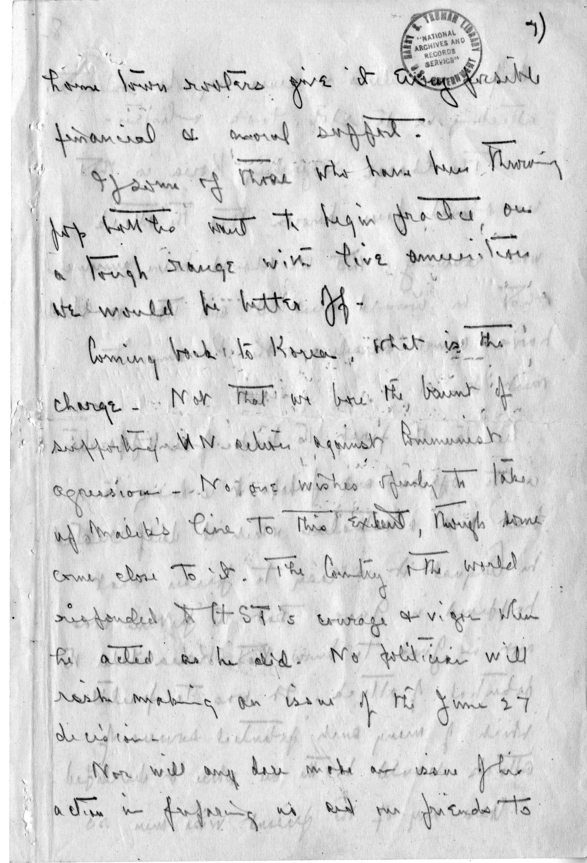 7)
HARRY S. TRUMAN LIBRARY
"NATIONAL
ARCHIVES AND
RECORDS
SERVICE"
U.S. GOVERNMENT
home town rooters give it every possible
financial & moral support.
If some of those who have been throwing
pop bottles want to begin practice on
a tough range with live ammunition
we would be better off -
Coming back to Korea, what is the
charge - Not that we bore the brunt of
supporting UN action against Communist
agression - No one wishes openly to take
up Malik's line to this extent, though some
come close to it. The Country & the world
responded to HST's courage & vigor when
he acted as he did. No politician will
risk making an issue of the June 27
decision
Nor will any be made an issue of his
action in preparing us and our friends to